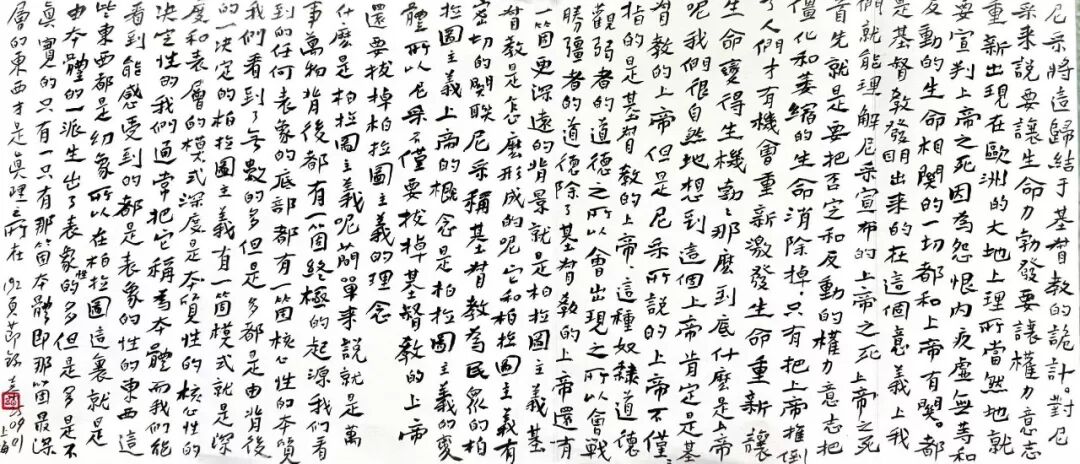 尼采將這歸結于基督教的詭計。對尼
采来説要讓生命力勃發要讓權力意志
重新出現在歐洲的大地上理所當然地就
要宣判上帝之死因為怨恨内疚虛无等和
反動的生命相関的一切都和上帝有關。都
是基督教發明出來的在這個意義上我
們就能理解尼采宣布的上帝之死上帝之死
首先就是要把否定和反動的權力意志把
僵化和萎縮的生命消除掉,只有把上帝推倒
了人們才有機會重新激發生命重新讓
生命變得生機勃勃那麼到底什麼是上帝
呢我們很自然地想到這個上帝肯定是基
督教的上帝但是尼采所說的上帝不僅
指的是基督教的上帝、這種奴隸道德
觀弱者的道德之所以會出現之所以會戰
勝彊者的道德除了基督教的上帝還有
一箇更深遠的背景就是柏拉圖主義基
督教是怎麼形成的呢它和柏拉圖主義有
密切的関联尼采稱基督教為民衆的柏
拉圖主義上帝的概念是柏拉圖主義的变
體所以尼采不僅要拔掉基督教的上帝
還要拔掉柏拉圖主義的理念
什麼是柏拉圖主義呢簡單来説就是萬
事萬物背後都有一箇終極的起源我們看
到的任何表象的底部都有一箇核心性的本質
我們看到了無數的多但是多都是由背後
的一决定的柏拉圖主義有一箇模式就是深
度和表層的模式深度是本質性的核心性的
决定性的我們通常把它稱為本體而我們能
看到能感受到的都是表象的性的東西這
些東西都是幻象所以在柏拉圖這裏就是
由本體的一派生出了表象性的多但是多是不
真實的只有一只有那箇本體即那箇最深
層的東西才是真理之所在 192頁節録 上海